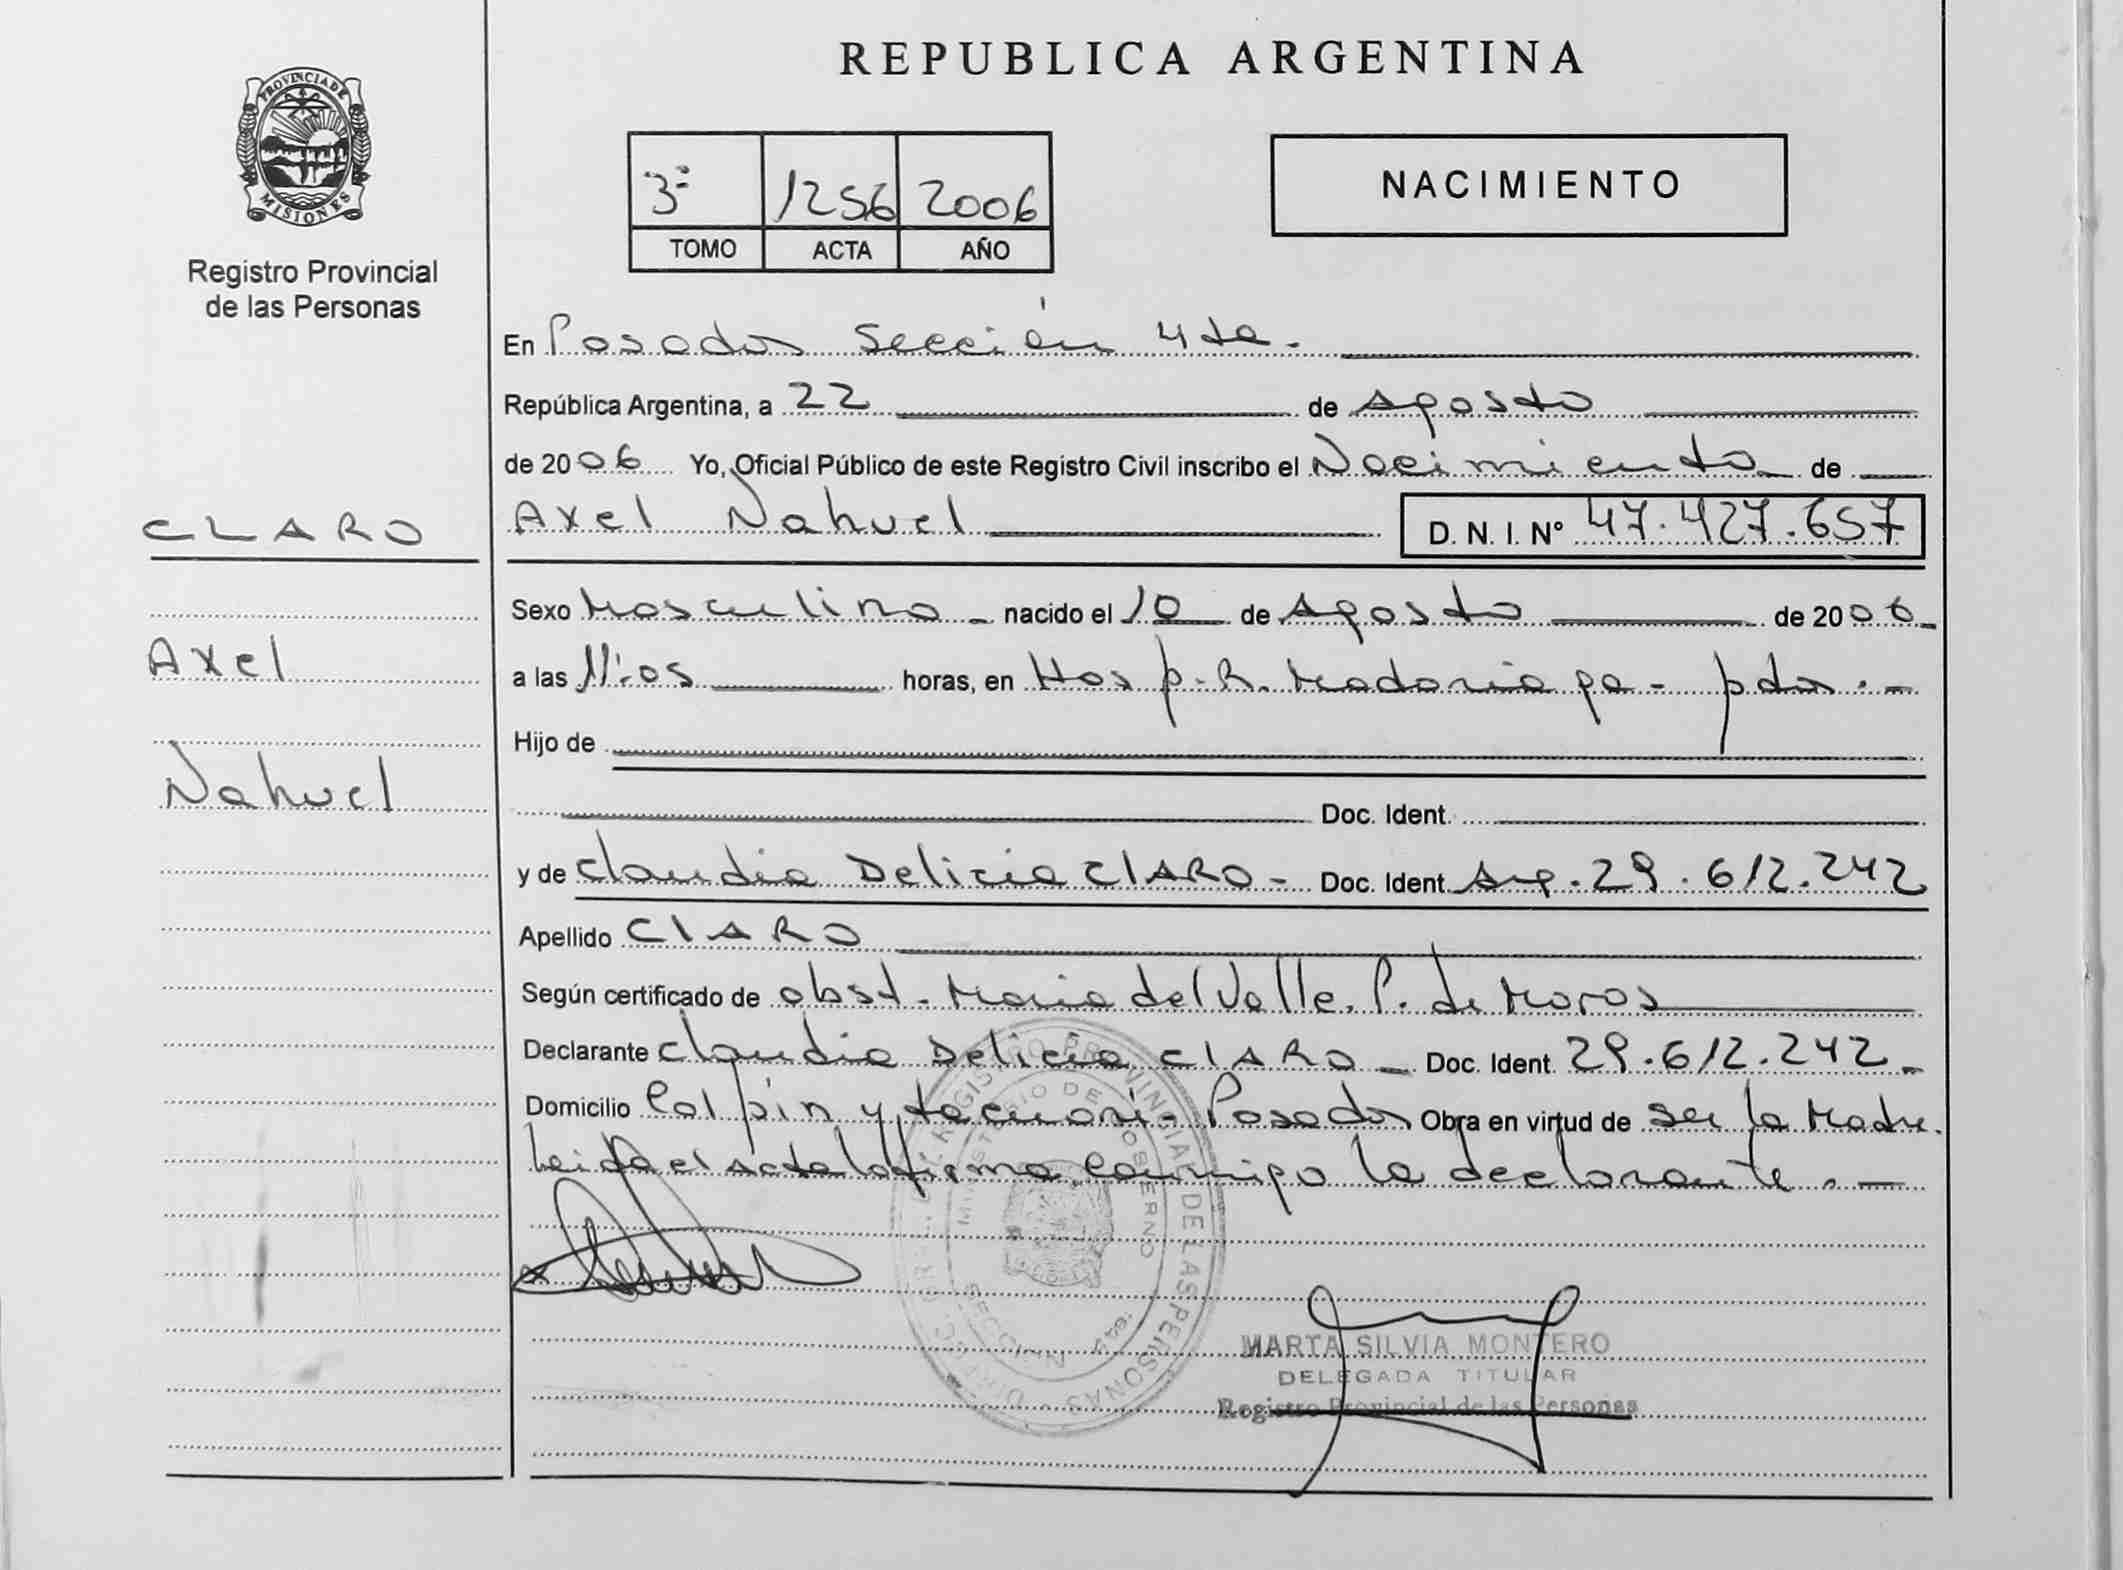 REPUBLICA ARGENTINA
PROVINCIA DE
MISIONES
Registro Provincial
de las Personas
3ª 1256 2006
TOMO ACTA AÑO
NACIMIENTO
En Posadas Sección 4ta.
República Argentina, a 22 de Agosto
de 2006 Yo, Oficial Público de este Registro Civil inscribo el Nacimiento de
Axel Nahuel D. N. I. Nº 47.427.657
CLARO
Axel
Nahuel
Sexo Masculino nacido el 10 de Agosto de 2006
a las 11:05 horas, en Hosp. R. Madariaga - pdas.
Hijo de
Doc. Ident.
y de Claudia Delicia CLARO - Doc. Ident. Arg. 29.612.242
Apellido CLARO
Según certificado de obst. Maria del Valle. P. de
Declarante Claudia Delicia CLARO - Doc. Ident. 29.612.242
Domicilio y - Posadas Obra en virtud de ser la Madre.
Leida el acta la firma conmigo la declarante.
REGISTRO PROVINCIAL DE LAS PERSONAS
MINISTERIO DE GOBIERNO
SECCION
MARTA SILVIA MONTERO
DELEGADA TITULAR
Registro Provincial de las Personas